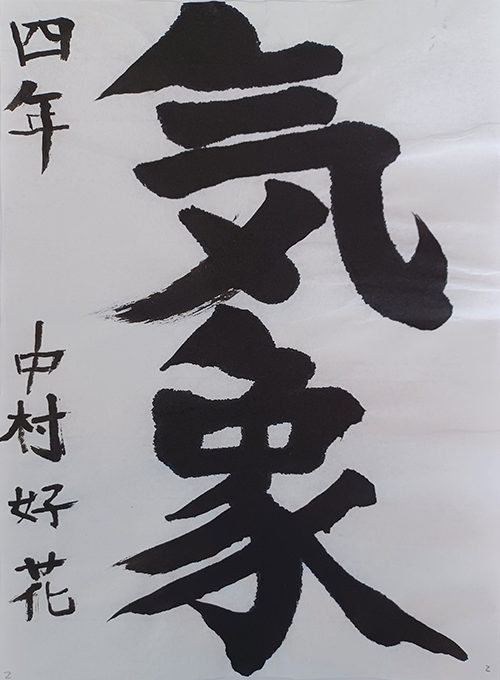 気象
四年 中村好花